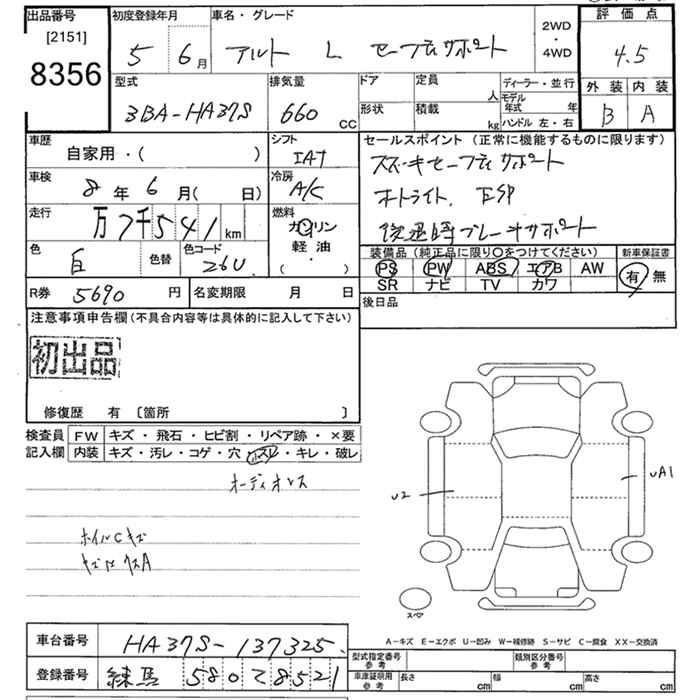 出品番号
[2151]
8356
初度登録年月
5 6月
車名・グレード
アルト L セーフティサポート
2WD
・
4WD
評価点
4.5
外装 内装
B A
型式
3BA-HA37S
排気量
660 CC
ドア
形状
定員 人
積載 kg
ディーラー・並行
モデル年式 年
ハンドル 左・右
車歴
自家用・( )
シフト
IAT
車検
8年6月( 日)
冷房
A/C
走行
万7千541km
燃料
ガソリン
軽油
・( )
色
白
色替
色コード
26U
R券 5690円
名変期限 月 日
セールスポイント(正常に機能するものに限ります)
スズキセーフティサポート
オートライト、ESP
後退時ブレーキサポート
装備品(純正品に限り○をつけてください)
PS PW ABS エアB AW
SR ナビ TV カワ
新車保証書
有 無
後日品
注意事項申告欄(不具合内容等は具体的に記入して下さい)
初出品
修復歴 有 〔箇所 〕
検査員記入欄
FW キズ・飛石・ヒビ割・リペア跡・×要
内装 キズ・汚レ・コゲ・穴・ホスレ・キレ・破レ
オーディオレス
ホイルCキズ
U2
UA1
スペア
A-キズ E-エクボ U-凹み W-補修跡 S-サビ C-腐食 XX-交換済
車台番号 HA37S-137325
登録番号 練馬 580て8521
型式指定番号
参考
類別区分番号
参考
車庫証明用
参考
長さ cm
幅 cm
高さ cm